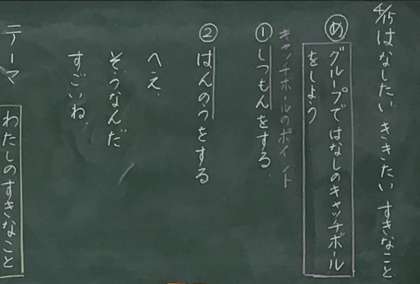 4/15 はなしたい ききたい すきなこと
め グループではなしのキャッチボール
をしよう
キャッチボールのポイント
① しつもんをする。
② はんのうをする
へえ、
そうなんだ
すごいね、
テーマ
わたしのすきなこと